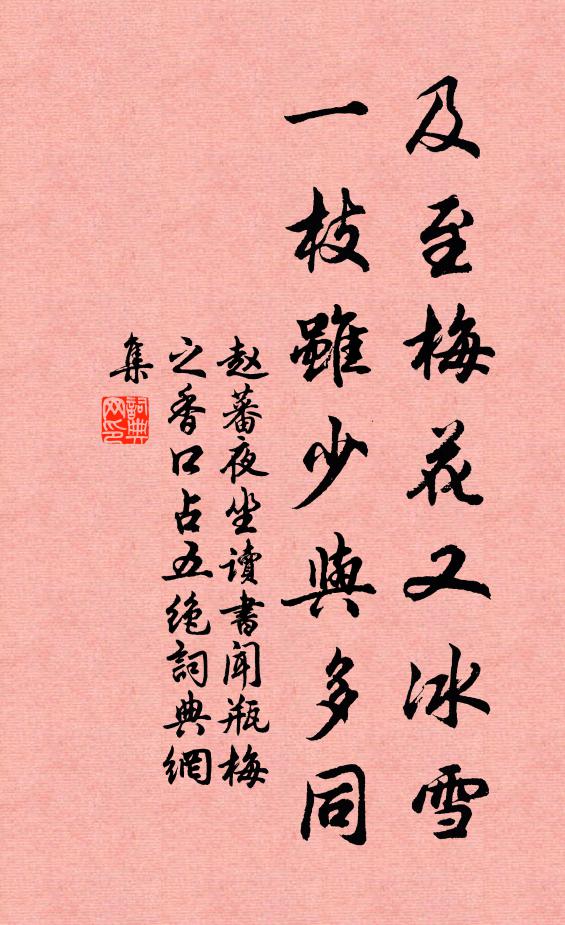 及至梅花又冰雪
一枝雖少與多同
赵蕃夜坐讀書闻瓶梅
之香口占五绝詞典網
集
詞典
网印